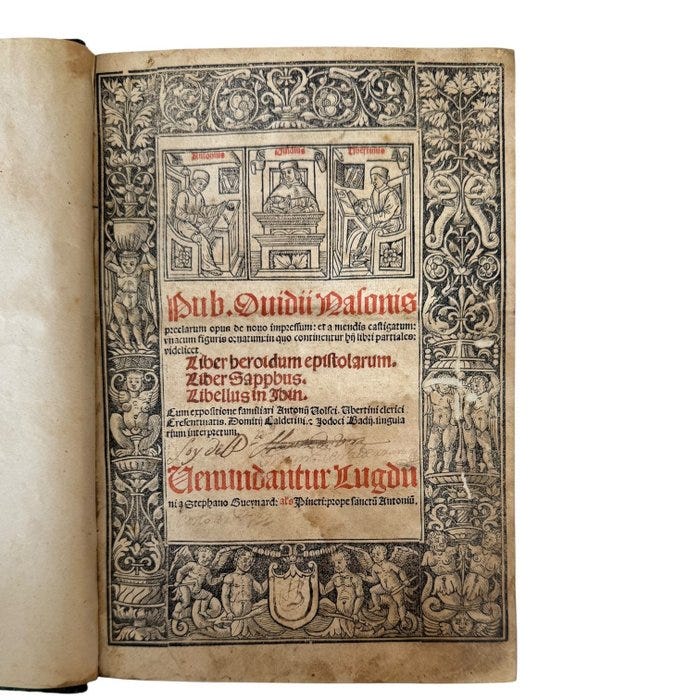 Antonius Ouidius Ubertinus
Pub. Ouidii Nasonis
preclarum opus de nouo impressum: et a mendis castigatum:
vnacum figuris ornatum: in quo continentur hij libri partiales:
videlicet
Liber heroidum epistolarum.
Liber Sapphus.
Libellus in Ibin.
Cum expositione familiari Antonij Volsci. Ubertini clerici
Cresentinatis. Domitij Calderini. & Jodoci Badij. singula
rium interpretum.
Soy de
Uenundantur Lugdu
ni a Stephano Gueynard: als Pineti: prope sanctū Antoniū.